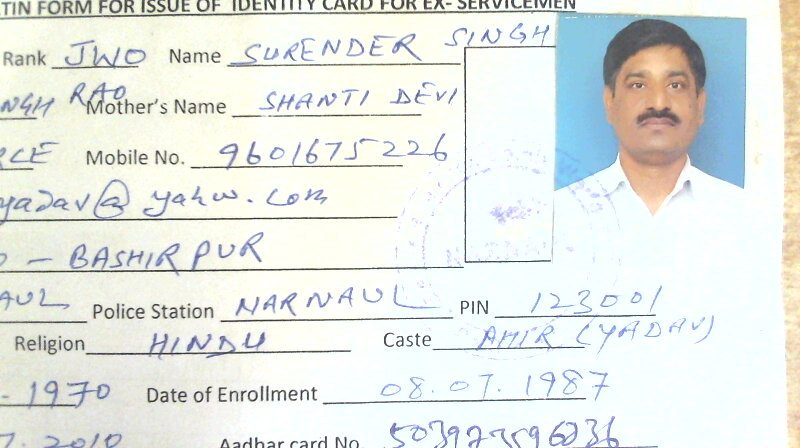 TIN FORM FOR ISSUE OF IDENTITY CARD FOR EX- SERVICEMEN
Rank JWO Name SURENDER SINGH
NGH RAO Mother's Name SHANTI DEVI
RCE Mobile No. 9601675226
yadav@yahoo.com
O - BASHIRPUR
AUL Police Station NARNAUL PIN 123001
Religion HINDU Caste AHIR (YADAV)
-1970 Date of Enrollment 08.07.1987
7.2010 Aadhar card No.